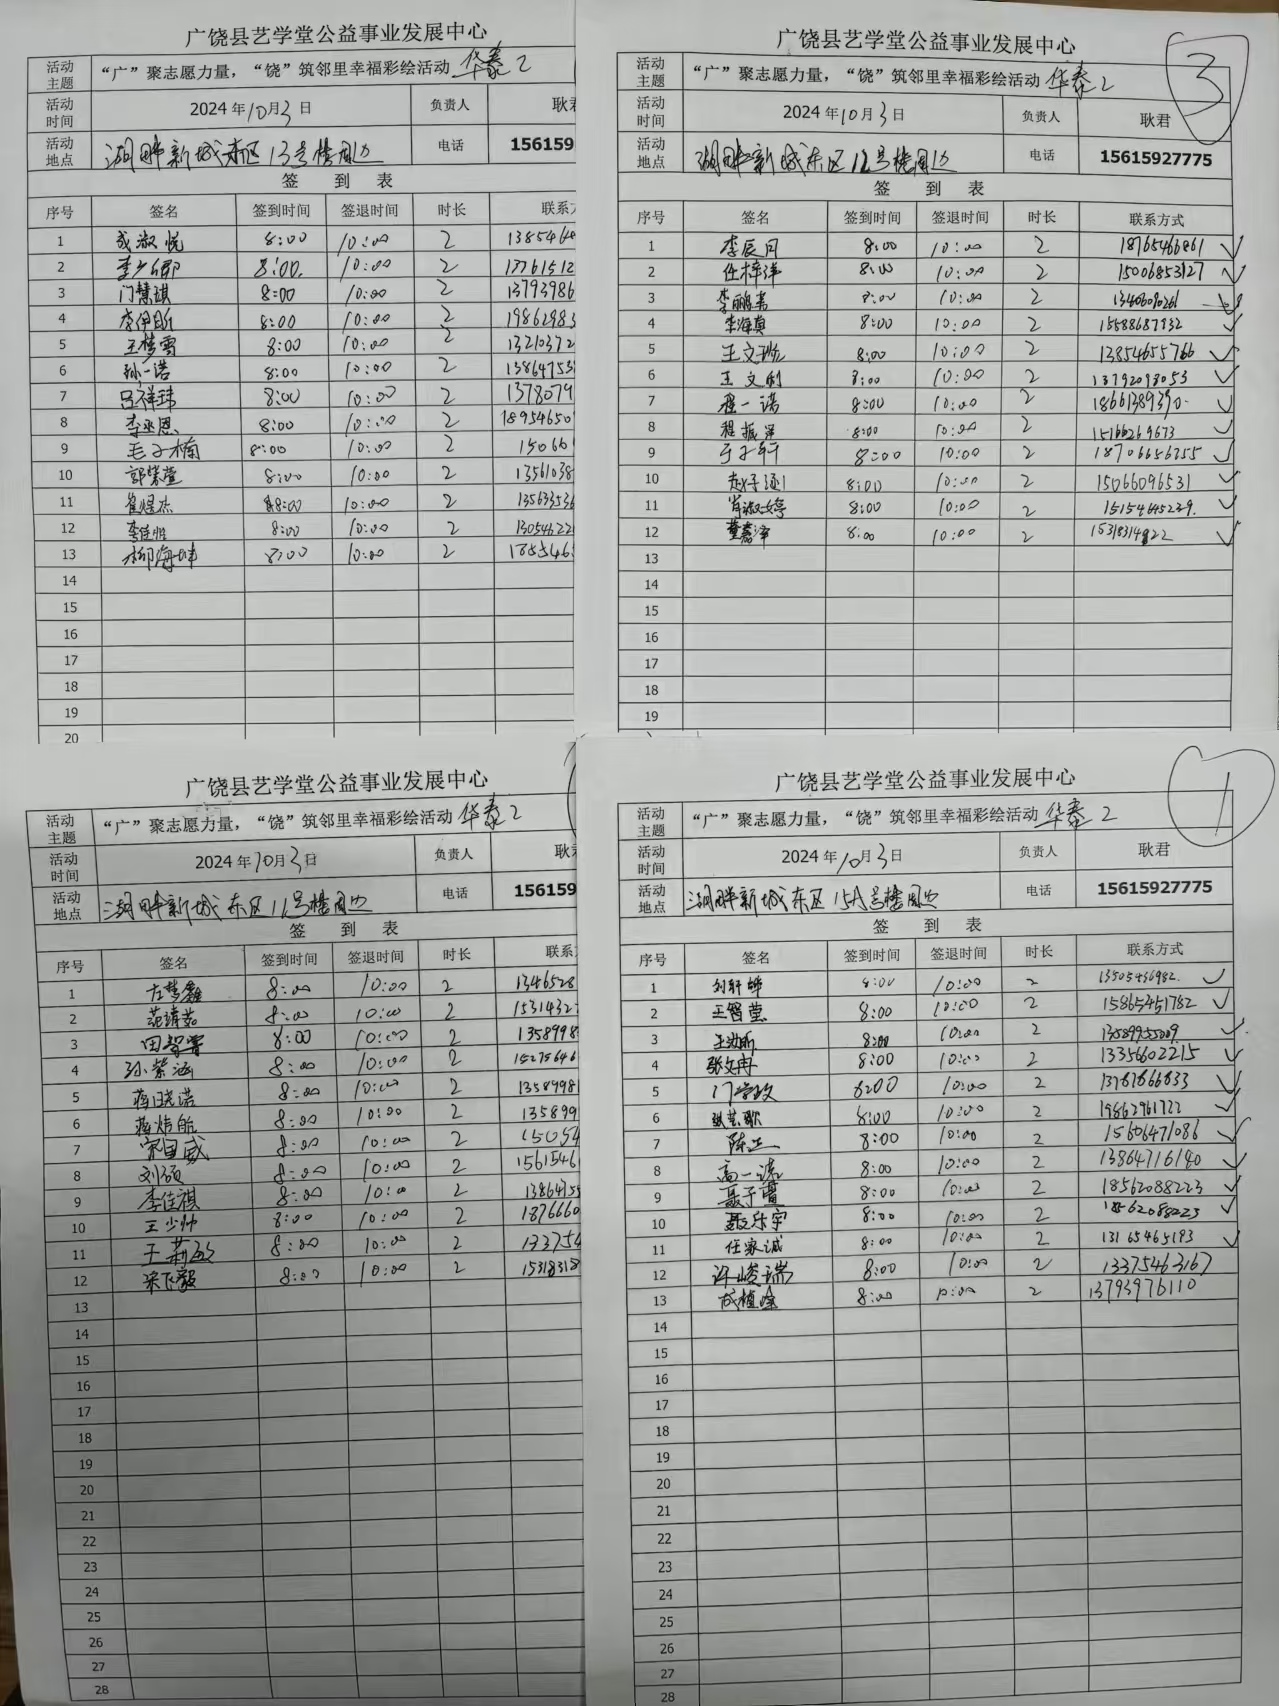 广饶县艺学堂公益事业发展中心
活动主题 “广”聚志愿力量，“饶”筑邻里幸福彩绘活动 华泰2
活动时间 2024年10月3日 负责人 耿
活动地点 湖畔新城东区13号楼周边 电话 156159
签 到 表
序号 签名 签到时间 签退时间 时长 联系
1 成淑悦 8:00 10:00 2 1385464
2 8:00. 10:00 2 17761512
3 门慧琪 8:00 10:00 2 13793986
4 李伊昕 8:00 10:00 2 19862983
5 王梦雪 8:00 10:00 2 13210372
6 孙一诺 8:00 10:00 2 13864753
7 吕祥玮 8:00 10:00 2 1378079
8 李丞恩 8:00 10:00 2 18954650
9 毛子楠 8:00 10:00 2 150661
10 郭荣萱 8:00 10:00 2 13561038
11 崔煜杰 8:00 10:00 2 13563536
12 李佳恒 8:00 10:00 2 13054622
13 柳海坤 8:00 10:00 2 1855468
14
15
16
17
18
19
20
广饶县艺学堂公益事业发展中心 3
活动主题 “广”聚志愿力量，“饶”筑邻里幸福彩绘活动 华泰2
活动时间 2024年10月3日 负责人 耿君
活动地点 湖畔新城东区12号楼周边 电话 15615927775
签 到 表
序号 签名 签到时间 签退时间 时长 联系方式
1 李辰月 8:00 10:00 2 18765466861
2 任梓洋 8:00 10:00 2 15006853127
3 8:00 10:00 2
4 李海真 8:00 10:00 2 15588687932
5 8:00 10:00 2 13854655766
6 王文利 8:00 10:00 2 13792098053
7 程一诺 8:00 10:00 2 18661389390
8 程振洋 8:00 10:00 2 15166269673
9 于子轩 8:00 10:00 2 18706656355
10 8:00 10:00 2 15066096531
11 肖淑婷 8:00 10:00 2 15154645239.
12 董嘉泽 8:00 10:00 2 15318314822
13
14
15
16
17
18
19
广饶县艺学堂公益事业发展中心
活动主题 “广”聚志愿力量，“饶”筑邻里幸福彩绘活动 华泰2
活动时间 2024年10月3日 负责人 耿
活动地点 湖畔新城东区11号楼周边 电话 156159
签 到 表
序号 签名 签到时间 签退时间 时长 联系
1 左梦鑫 8:00 10:00 2 1346528
2 范靖茹 8:00 10:00 2 1531432
3 田智睿 8:00 10:00 2 1358998
4 孙紫涵 8:00 10:00 2 15275646
5 蒋晓诺 8:00 10:00 2 1358998
6 蒋炜航 8:00 10:00 2 135899
7 宋国威 8:00 10:00 2 15054
8 刘硕 8:00 10:00 2 1561546
9 李佳祺 8:00 10:00 2 13864755
10 王少帅 8:00 10:00 2 1876660
11 王莉敏 8:00 10:00 2 133754
12 宋飞毅 8:00 10:00 2 15318318
13
14
15
16
17
18
19
20
21
22
23
24
25
26
27
28
广饶县艺学堂公益事业发展中心 1
活动主题 “广”聚志愿力量，“饶”筑邻里幸福彩绘活动 华泰2
活动时间 2024年10月3日 负责人 耿君
活动地点 湖畔新城东区15A号楼周边 电话 15615927775
签 到 表
序号 签名 签到时间 签退时间 时长 联系方式
1 刘轩烨 8:00 10:00 2 13505436982.
2 王智莹 8:00 10:00 2 15865451782
3 8:00 10:00 2 13589955009
4 张文冉 8:00 10:00 2 13356602215
5 门学政 8:00 10:00 2 13781866833
6 8:00 10:00 2 19862961722
7 陈正 8:00 10:00 2 15606471086
8 高一涵 8:00 10:00 2 13864716180
9 聂子萱 8:00 10:00 2 18562088223
10 聂乐宇 8:00 10:00 2 18562088223
11 任家诚 8:00 10:00 2 13165465193
12 许峻瑞 8:00 10:00 2 13375463167
13 8:00 10:00 2 13793976110
14
15
16
17
18
19
20
21
22
23
24
25
26
27
28